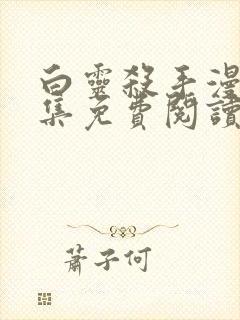 白靈殺手漫
集免費閱讀
蕭子何